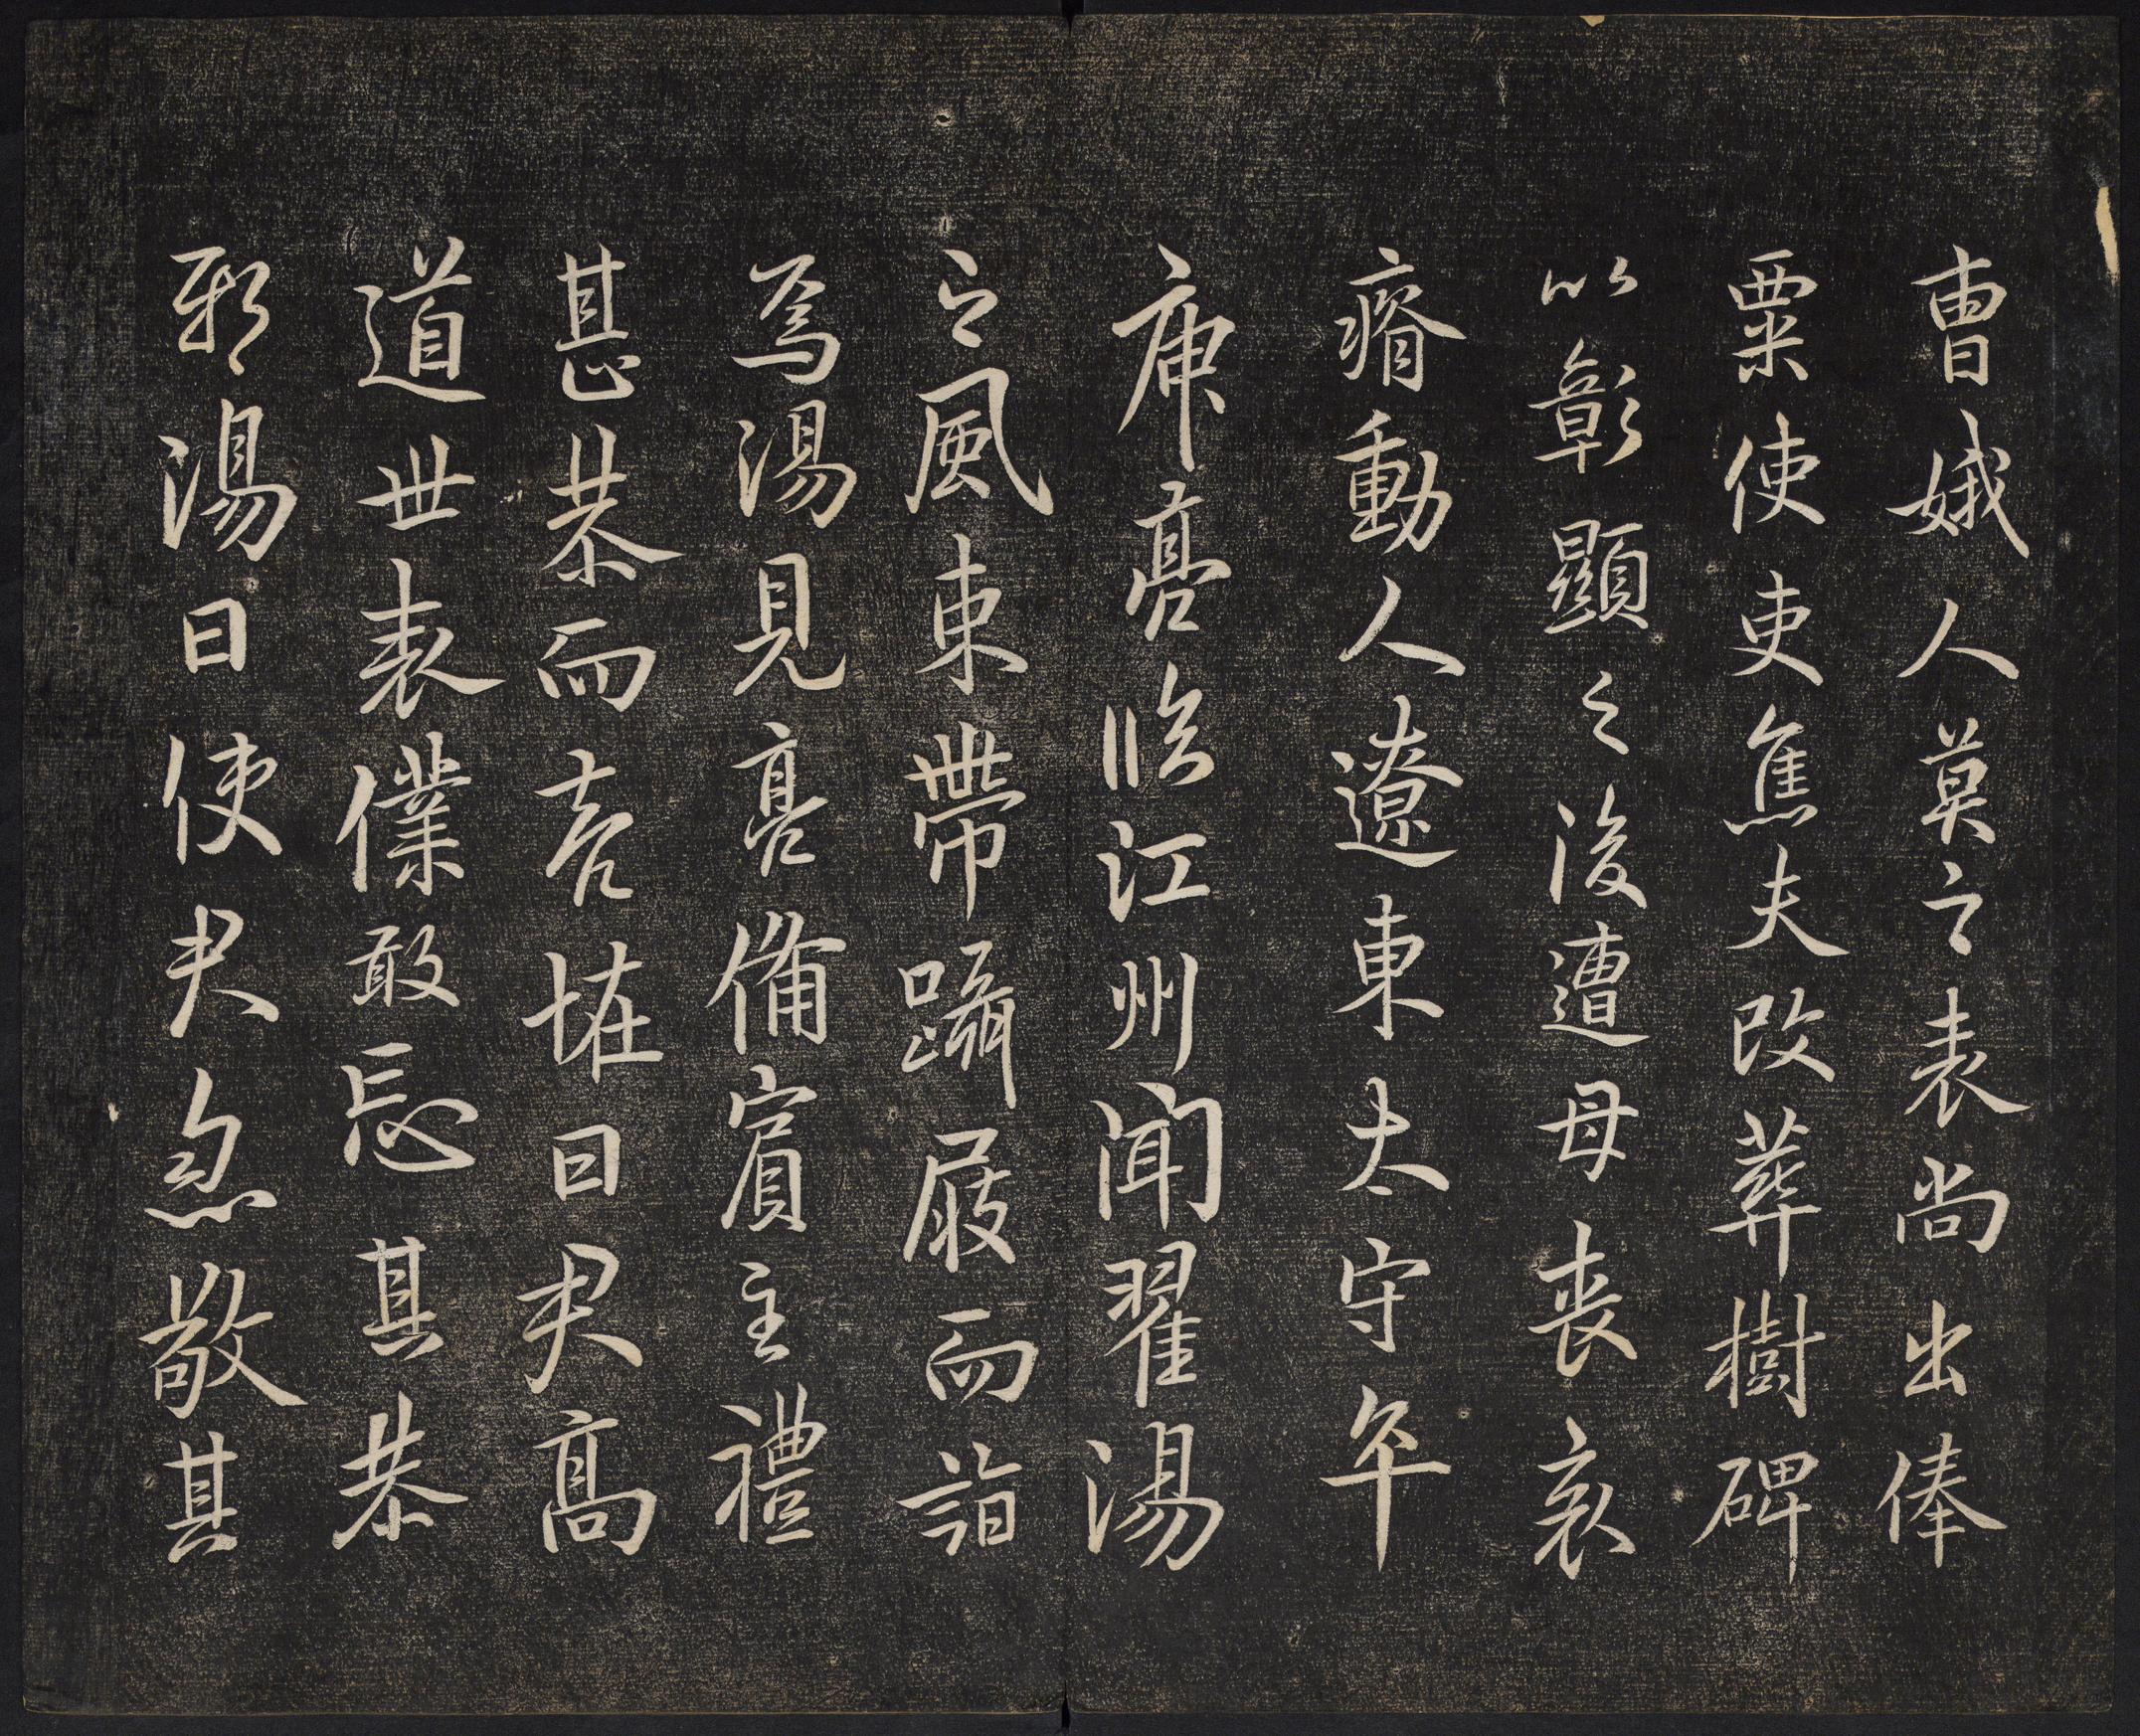 曹娥人莫之表尚出俸
粟使吏焦夫改葬樹碑
以彰顯之後遭母喪哀
瘠動人遼東太守卒
庾亮臨江州聞翟湯
之風束帶躡屐而詣
焉湯見亮備賓主禮
甚恭而亮怪曰君高
道世表僕敢忘其恭
邪湯曰使君忽敬其